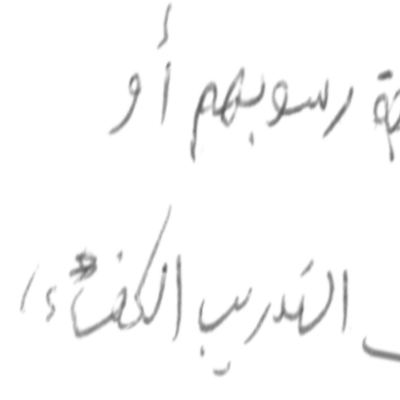 رسوبهم أو
التدريب الكفاء